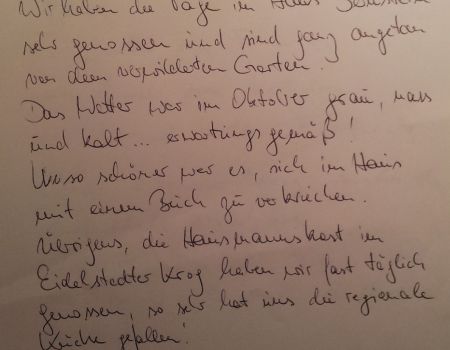 Wir haben die Tage im Haus
sehr genossen und sind ganz angetan
von dem verwilderten Garten.
Das Wetter war im Oktober grau, nass
und kalt... erwartungsgemäß!
Umso schöner war es, sich im Haus
mit einem Buch zu verkriechen.
Übrigens, die Hausmannskost im
Eidelstedter Krog haben wir fast täglich
genossen, so sehr hat uns die regionale
Küche gefallen!